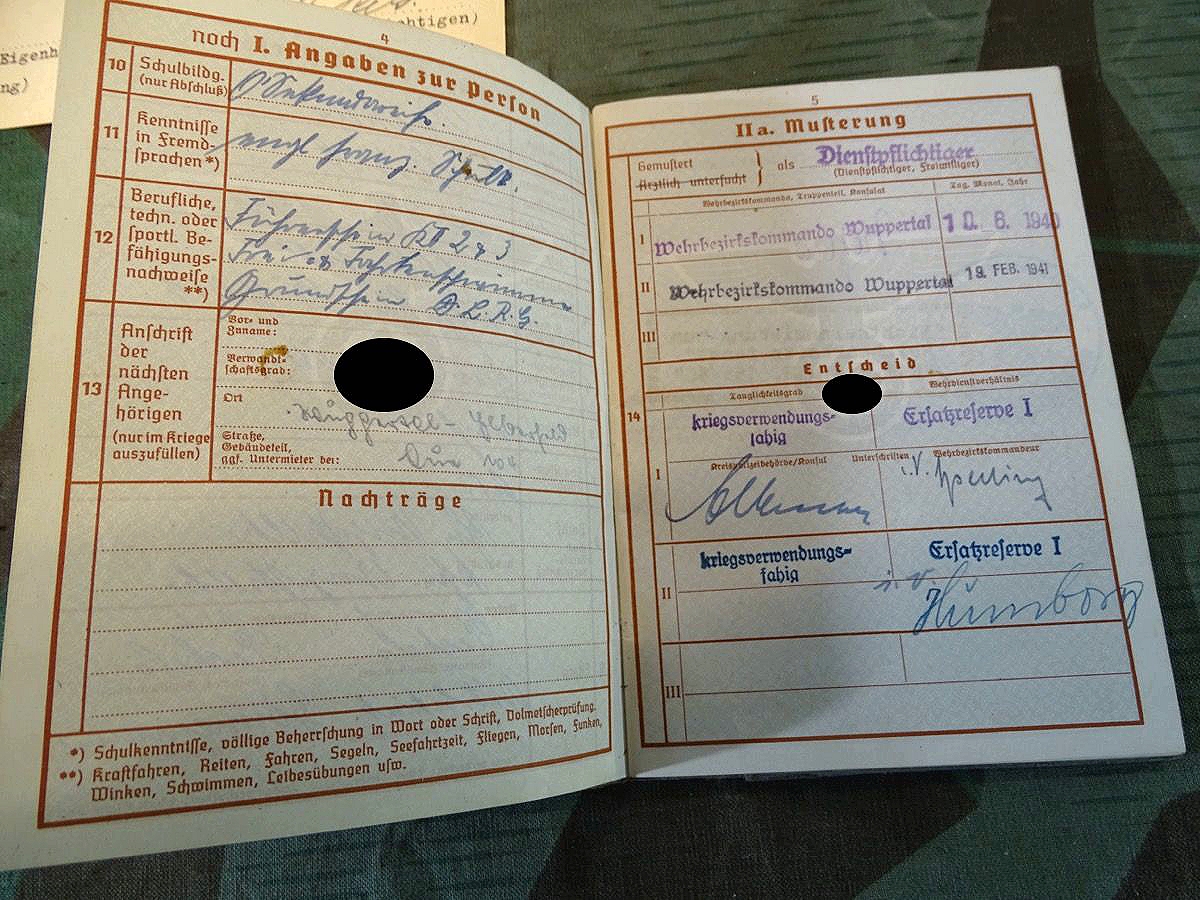 htigen)
Eigenh
ng)
4
noch I. Angaben zur Person
10 Schulbildg.
(nur Abschluß)
O'Sekundareife.
11 Kenntnisse
in Fremd-
sprachen*)
engl franz. Schule.
12 Berufliche,
techn. oder
sportl. Be-
fähigungs-
nachweise
**)
Führerschein Kl 2 & 3
Frei & Fahrtenschwimmer
Grundschein D.L.R.G.
13 Anschrift
der
nächsten
Ange-
hörigen
(nur im Kriege
auszufüllen)
Vor- und
Zuname:
Verwandt-
schaftsgrad:
Ort
Wuppertal-Elberfeld
Straße,
Gebäudeteil,
ggf. Untermieter bei:
Nachträge
*) Schulkenntnisse, völlige Beherrschung in Wort oder Schrift, Dolmetscherprüfung.
**) Kraftfahren, Reiten, Fahren, Segeln, Seefahrtzeit, Fliegen, Morsen, Funken,
Winken, Schwimmen, Leibesübungen usw.
5
IIa. Musterung
Gemustert
Ärztlich untersucht
} als Dienstpflichtiger
(Dienstpflichtiger, Freiwilliger)
Wehrbezirkskommando, Truppenteil, Konsulat Tag, Monat, Jahr
I Wehrbezirkskommando Wuppertal 10. 6. 1940
II Wehrbezirkskommando Wuppertal 19. FEB. 1941
III
Entscheid
14
Tauglichkeitsgrad Wehrdienstverhältnis
kriegsverwendungs-
fähig
Ersatzreserve I
I
Kreispolizeibehörde/Konsul Unterschriften Wehrbezirkskommandeur
i.V.
II
kriegsverwendungs-
fähig
Ersatzreserve I
i.V.
III